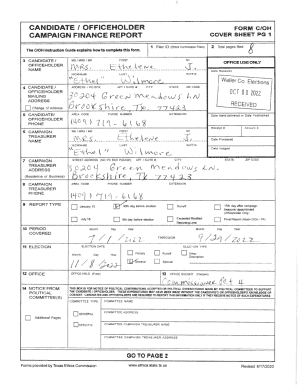 CANDIDATE / OFFICEHOLDER
CAMPAIGN FINANCE REPORT
FORM C/OH
COVER SHEET PG 1
The C/OH Instruction Guide explains how to complete this form.
1 Filer ID (Ethics Commission Filers)
2 Total pages filed:
8
3 CANDIDATE / OFFICEHOLDER NAME
MS / MRS / MR FIRST MI
Mrs. Ethelene J.
NICKNAME LAST SUFFIX
"Ethel" Wilmore
OFFICE USE ONLY
Date Received
Waller Co. Elections
OCT 03 2022
RECEIVED
4 CANDIDATE / OFFICEHOLDER MAILING ADDRESS
Change of Address
ADDRESS / PO BOX; APT / SUITE #; CITY; STATE; ZIP CODE
30204 Green Meadows LN.
Brookshire, Tx. 77423
5 CANDIDATE/ OFFICEHOLDER PHONE
AREA CODE PHONE NUMBER EXTENSION
(409) 719-6168
Date Hand-delivered or Date Postmarked
Receipt # Amount $
Date Processed
Date Imaged
6 CAMPAIGN TREASURER NAME
MS / MRS / MR FIRST MI
Mrs. Ethelene J.
NICKNAME LAST SUFFIX
"Ethel" Wilmore
7 CAMPAIGN TREASURER ADDRESS
(Residence or Business)
STREET ADDRESS (NO PO BOX PLEASE); APT / SUITE #; CITY; STATE; ZIP CODE
30204 Green Meadows LN.
Brookshire, Tx. 77423
8 CAMPAIGN TREASURER PHONE
AREA CODE PHONE NUMBER EXTENSION
(409) 719-6168
9 REPORT TYPE
January 15
30th day before election
Runoff
15th day after campaign treasurer appointment (Officeholder Only)
July 15
8th day before election
Final Report (Attach C/OH - FR)
10 PERIOD COVERED
Month Day Year
7/1/2022
THROUGH
9/29/2022
11 ELECTION
ELECTION DATE
Month Day Year
11/8/2022
ELECTION TYPE
Primary
Runoff
Other Description
General
Special
12 OFFICE
OFFICE HELD (if any)
13 OFFICE SOUGHT (if known)
Commissioner Pct 4
14 NOTICE FROM POLITICAL COMMITTEE(S)
Additional Pages
COMMITTEE TYPE
GENERAL
SPECIFIC
COMMITTEE NAME
COMMITTEE ADDRESS
COMMITTEE CAMPAIGN TREASURER NAME
COMMITTEE CAMPAIGN TREASURER ADDRESS
GO TO PAGE 2
Forms provided by Texas Ethics Commission
www.ethics.state.tx.us
Revised 8/17/2020